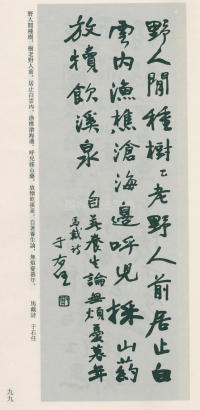 野人閒種樹〻老野人前居止白
雲內漁樵滄海邊呼兒採山藥
放犢飲溪泉
自著養生論無煩憂暮年
馬戴詩
于右任
野人閒種樹，樹老野人前，居止白雲內，漁樵滄海邊，呼兒採山藥，放犢飲溪泉，自著養生論，無煩憂暮年。
馬戴詩 于右任
九九